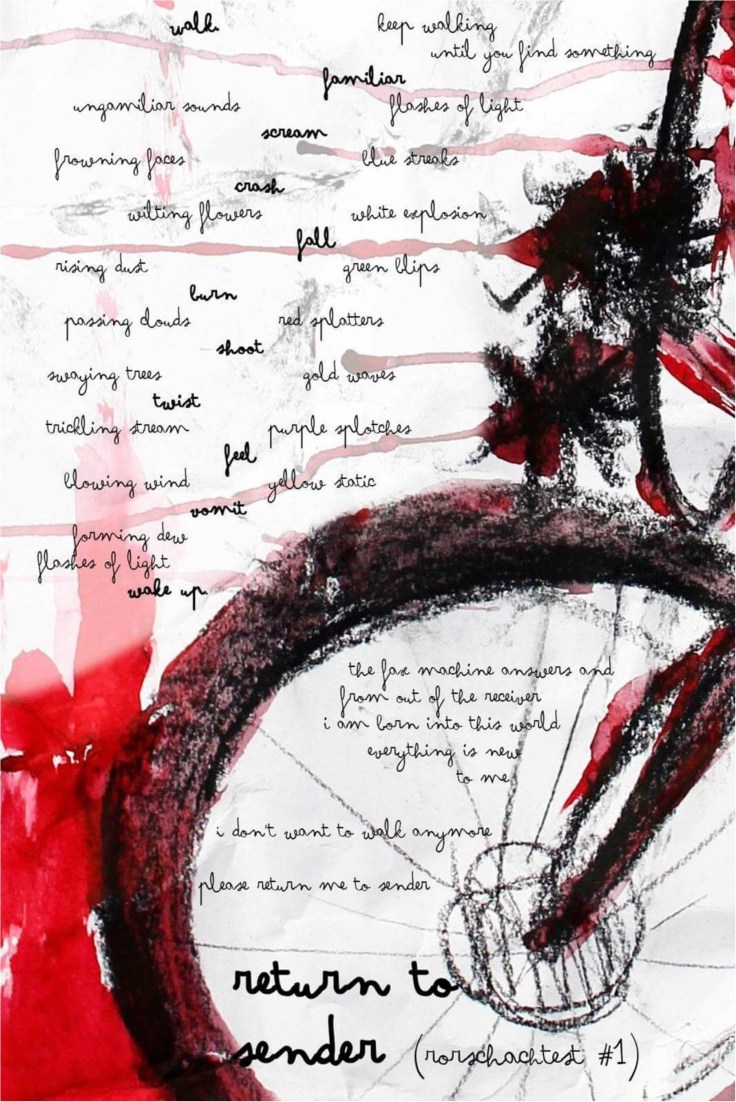 walk.
keep walking
until you find something
familiar
unfamiliar sounds
flashes of light
scream
frowning faces
blue streaks
crash
wilting flowers
white explosion
fall
rising dust
green blips
burn
passing clouds
red splatters
shoot
swaying trees
gold waves
twist
trickling stream
purple splotches
feel
blowing wind
yellow static
vomit
forming dew
flashes of light
wake up.
the fax machine answers and
from out of the receiver
i am born into this world
everything is new
to me.
i don't want to walk anymore
please return me to sender
return to
sender (rorschachtest #1)